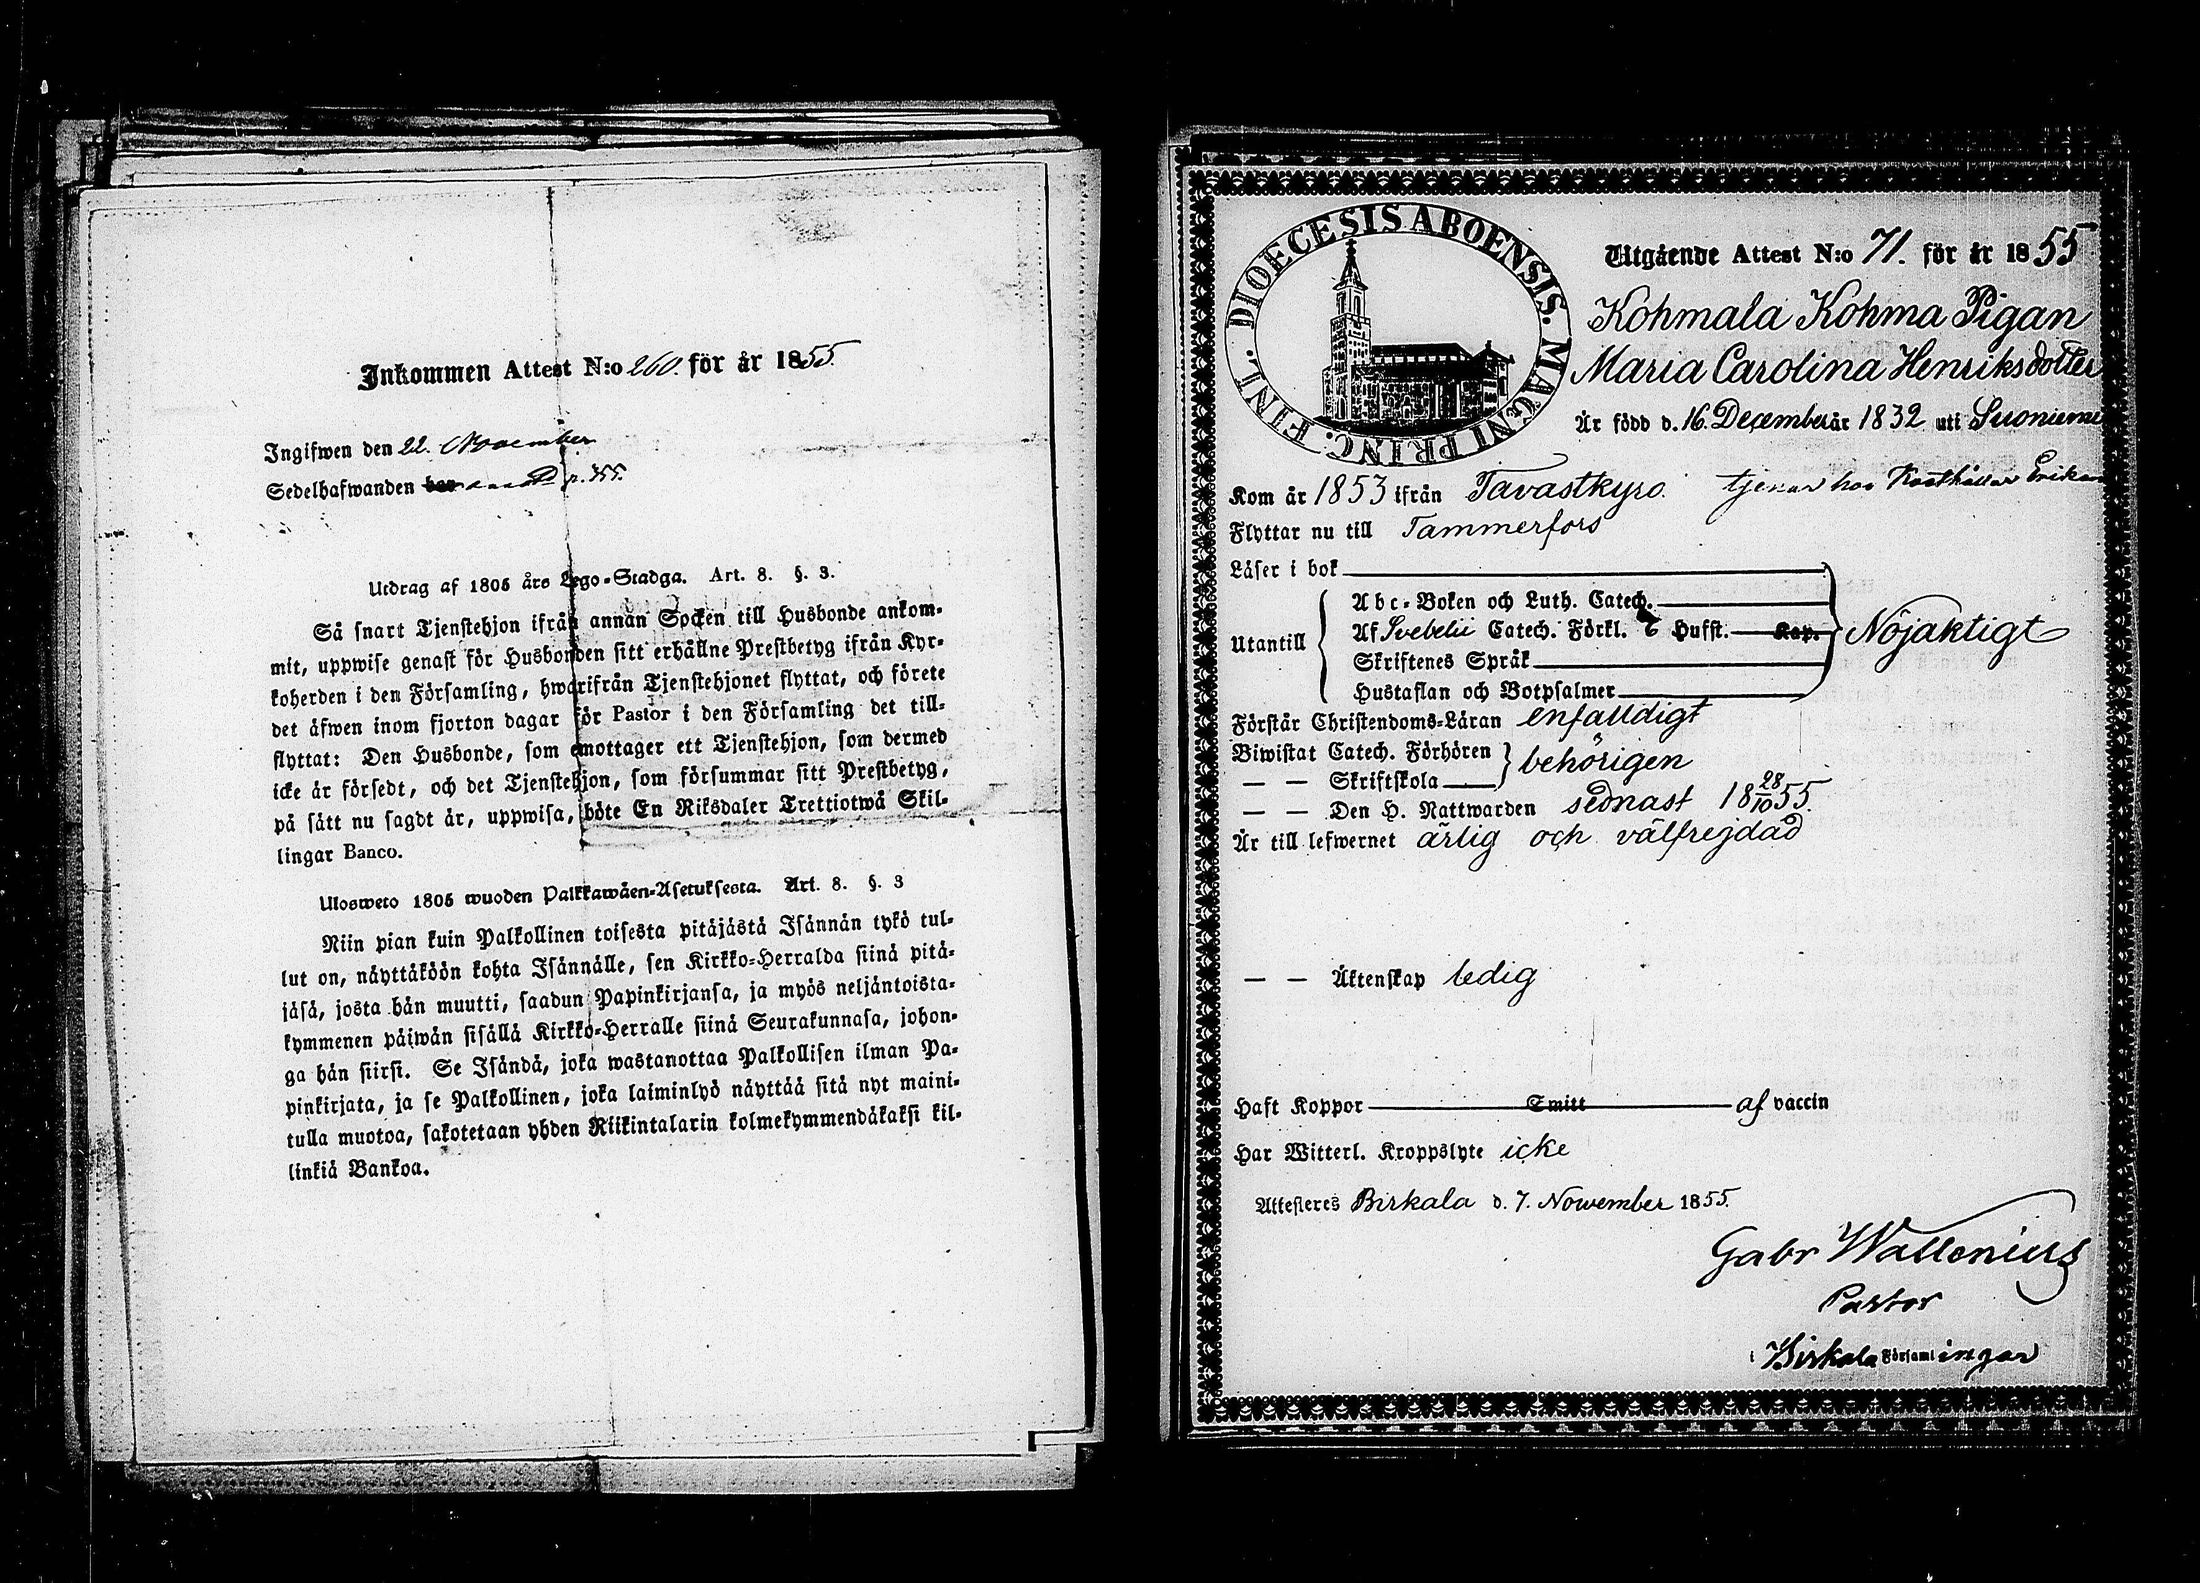 Inkommen Attest N:o 260. för år 1855.
Ingifwen den 22. November
Sedelhafwanden
Utdrag af 1805 års Lego-Stadga. Art. 8. §. 3.
Så snart Tjenstehjon ifrån annan Socken till Husbonde ankom-
mit, uppwise genast för Husbonden sitt erhållne Prestbetyg ifrån Kyr-
koherden i den Församling, hwarifrån Tjenstehjonet flyttat, och förete
det äfwen inom fjorton dagar för Pastor i den Församling det till-
flyttat: Den Husbonde, som emottager ett Tjenstehjon, som dermed
icke är försedt, och det Tjenstehjon, som försummar sitt Prestbetyg,
på sätt nu sagdt är, uppwisa, böte En Riksdaler Trettiotwå Skil-
lingar Banco.
Ulosweto 1805 wuoden Palkkawäen-Asetuksesta. Art. 8. §. 3
Niin pian kuin Palkollinen toisesta pitäjästä Isännän tykö tul-
lut on, näyttäköön kohta Isännälle, sen Kirkko-Herralda siinä pitä-
jäsä, josta hän muutti, saadun Papinkirjansa, ja myös neljäntoista-
kymmenen päiwän sisällä Kirkko-Herralle siinä Seurakunnasa, johon-
ga hän siirsi. Se Isändä, joka wastanottaa Palkollisen ilman Pa-
pinkirjata, ja se Palkollinen, joka laiminlyö näyttää sitä nyt maini-
tulla muotoa, sakotetaan yhden Riikintalarin kolmekymmendäkaksi kil-
linkiä Bankoa.
DIOECESIS ABOENSIS. MAGNI PRINC. FINL.
Utgående Attest N:o 71. för år 1855
Kohmala Kohma Pigan
Maria Carolina Henriksdotter
Är född d. 16. December år 1832 uti Suoniemi
Kom år 1853 ifrån Tavastkyro. tjenar hos
Flyttar nu till Tammerfors
Läser i bok
Utantill
Abc-Boken och Luth. Catech.
Af Svebelii Catech. Förkl. & Hufst. Kap.
Skriftenes Språk
Hustaflan och Botpsalmer
Nöjaktigt
Förstår Christendoms-Läran enfalldigt
Biwistat Catech. Förhören
— — Skriftskola
behörigen
— — Den H. Nattwarden sednast 18 28/10 55.
Är till lefwernet ärlig och välfrejdad
— — Äktenskap ledig
Haft Koppor Smitt af vaccin
Har Witterl. Kroppslyte icke
Attesteres Birkala d. 7. November 1855.
Gabr Wallenius
Pastor
i Birkala Församlingar